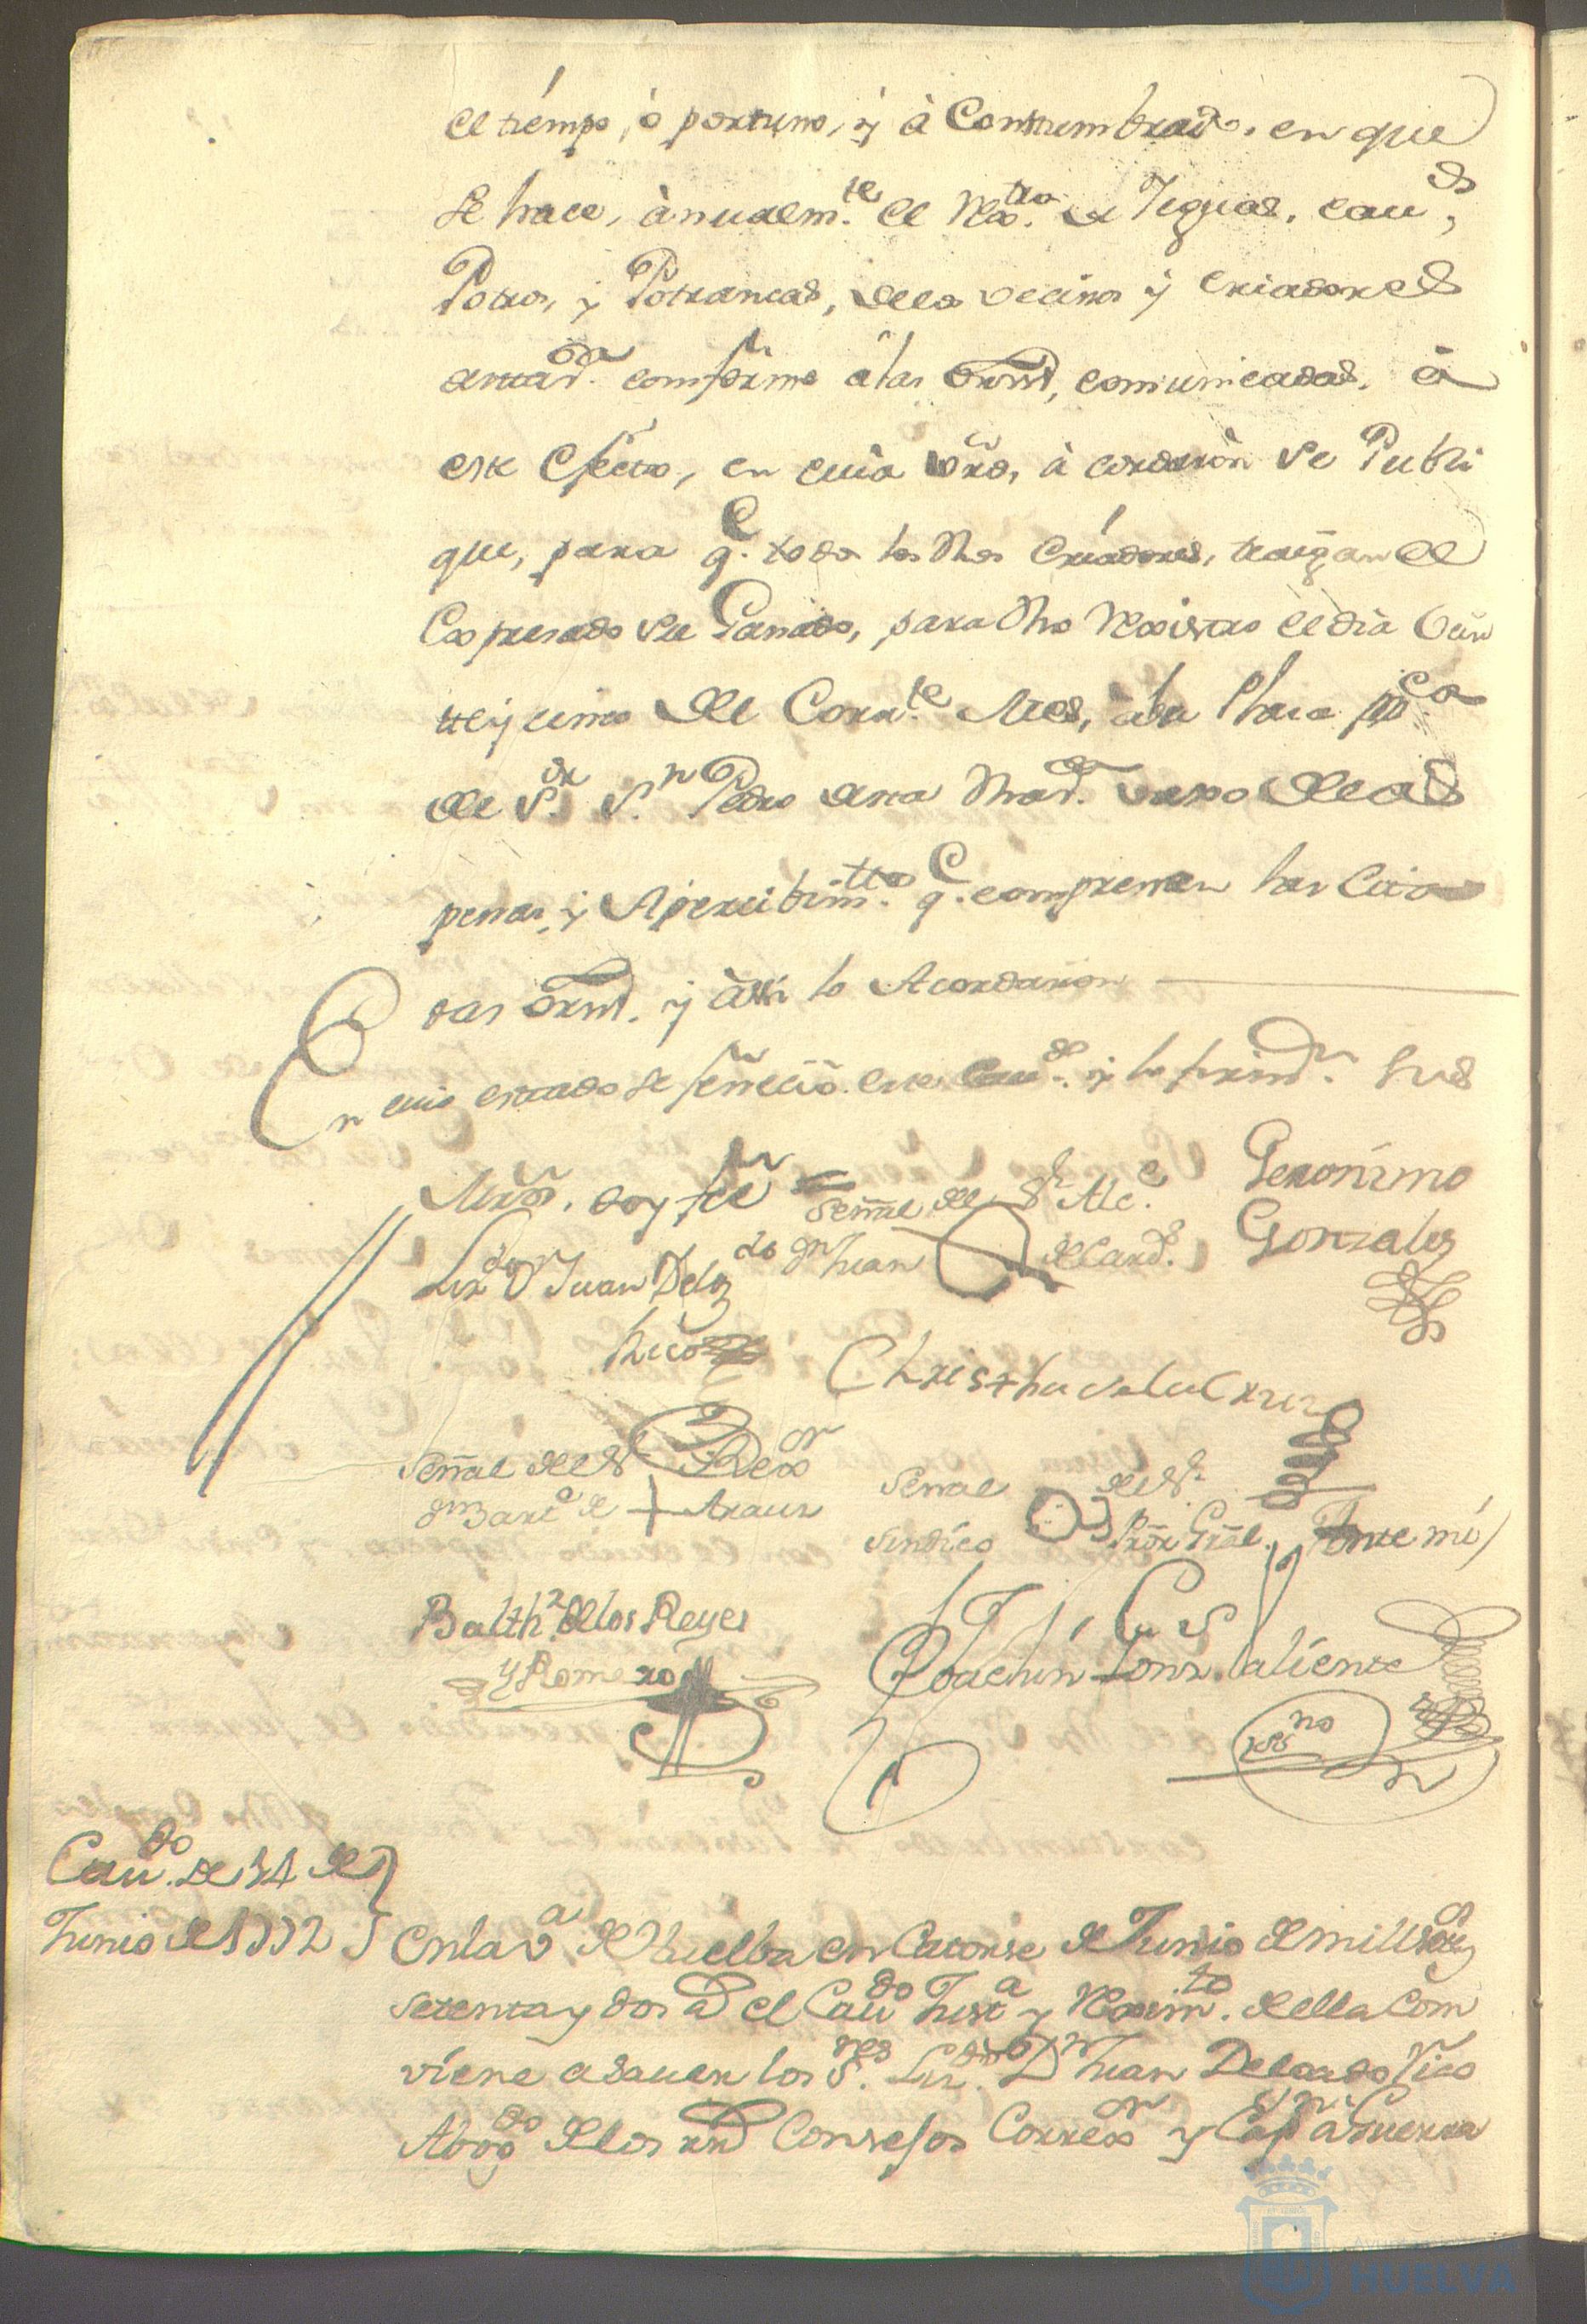 el tiempo, ò portuno, ý à Contumbrado, en que
se hace, ànualm.te el Rexo.tro de Yeguas, cau.s,
Potros, y Potrancas, delos vecinos ý criadores
conforme àlas òrns, comunicadas, à
este efecto, en cuia à cordaròn se Publi
que, para q.e todos los dhos Criadores, traigan el
expresado su Ganado, para dho Rexistro el dia vein
tte y cinco del Corr.te Mes, àla Plaza pp.ca
de S.or S.n Pedro desta dha vaxo delas
penas, y Apercibim.ttos q.e comprenen las Cita
das òrns. ý àssi lo Acordaron
En cuio estado se feneciò este Cau.do y lo firm Sus
Mrds. doy fee = Señal del S.r Alc.e Geronimo
Lix.do D.n Juan Delg.do d.n Juan de Card. Gonzales
Rico Christhoval de la Cruz
Señal del S.r Rex.or
d.n Bart.e de + Araus Señal del S.r
Sindico Prôr Grâl. Ante mi
Balth.z Delos Reyes
y Romero Joachin Gonz. Valiente
ess.no
Cau.do de 14 de
Junio de 1772
En la v.a de Huelba en Catorse de Junio de mill
setenta y dos a.s el Cau.do Just.a y Rexim.to della Com
biene a sauer los S.res Liz.do D.n Juan Delgado Rico
Abog.do Delos R.s Consejos Correx.or y Cap.n à Guerra
HUELVA